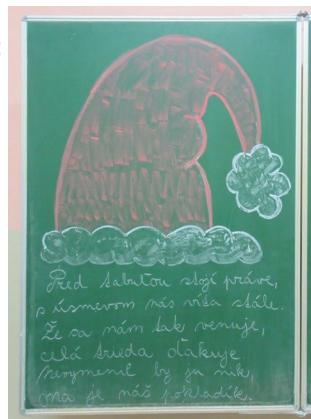 Pred tabuľou stojí práve,
s úsmevom nás víta stále.
Že sa nám tak venuje,
celá trieda ďakuje
nevymenil by ju nik,
má je náš pokladík.